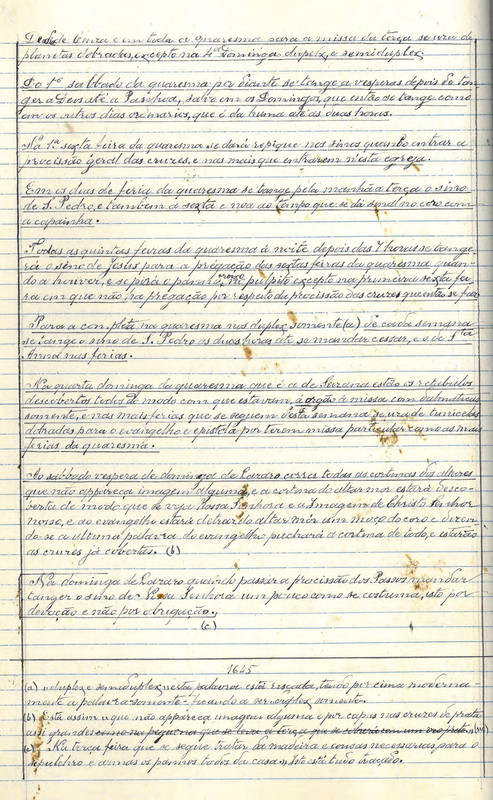 Desde Cinza e em toda a quaresma para a missa da terça se usa de
planetas dobradas, excepto na 4ª Dominga duplex, e semiduplex
Do 1º sabbado da quaresma por diante se tange a vesperas depois de tan-
ger a Deos até a Paschoa, salvo em os Domingos, que então se tange como
em os outros dias ordinarios, que é da huma até as duas horas.
Na 1ª sexta feira da quaresma se dará repique nos sinos quando entrar a
procissão geral das cruzes, e nas mais que entrarem n'esta egreja.
Em os dias de feria da quaresma se tange pela manhã a terça o sino
de S. Pedro, e tambem a sexta e noa ao tempo que se dá signal no coro com
a capainha.
Todas as quintas feiras da quaresma á noite depois das 7 horas se tange-
rá o sino de Jesus para a prégação das sextas feiras da quaresma quan-
do a houver, e se porá o panno roxo no pulpito excepto na primeira sexta fei-
ra em que não ha prégação por respeito da procissão das cruzes que então se faz
Para a completa na quaresma nos duplex somente (a) de cada semana
se tange o sino de S. Pedro as duas horas até se mandar cessar, e o de Stª
Anna nas ferias.
Na quarta dominga da quaresma que é a de Lazaro estão os retabulos
descobertos todos do modo com que estavam, á orgão á missa com dalmaticas
somente, e nas mais ferias que se seguem d'esta semana se usa de tunicelas
dobradas para o evangelho e epistola por terem missa particular como as mais
ferias da quaresma.
Ao sabbado vespera de dominga de Lazaro correr todas as cortinas dos altares
que não appareça imagem alguma, e a cortina do altar mor estará desco-
berta de modo que se veja Nossa Senhora e a Imagem de Christo Senhor
nosso, e ao evangelho estará detraz do altar mór um moço do coro e dizen-
do-se a ultima palavra do evangelho puchará a cortina de todo, e estarão
as cruzes já cobertas. (b)
Na dominga de Lazaro quando passar a procissão dos Passos mandar
tanger o sino de Nossa Senhora um pouco como se costuma, isto por
devoção e não por obrigação.
(c)
1645
(a) "duplex e semiduplex" esta palavra está riscada, tendo por cima moderna-
mente a palavra somente - ficando a ser duplex somente.
(b) Está assim "que não appareça imagem alguma e por capas nas cruzes de prata
assi grandes como na pequena que se leva a terça que se cobrirá com um veo preto."
(c) Na terça feira que se segue tratar da madeira e cousas necessarias para o
sepulchro e armas os pannos todos da casa. "Isto está tudo traçado.